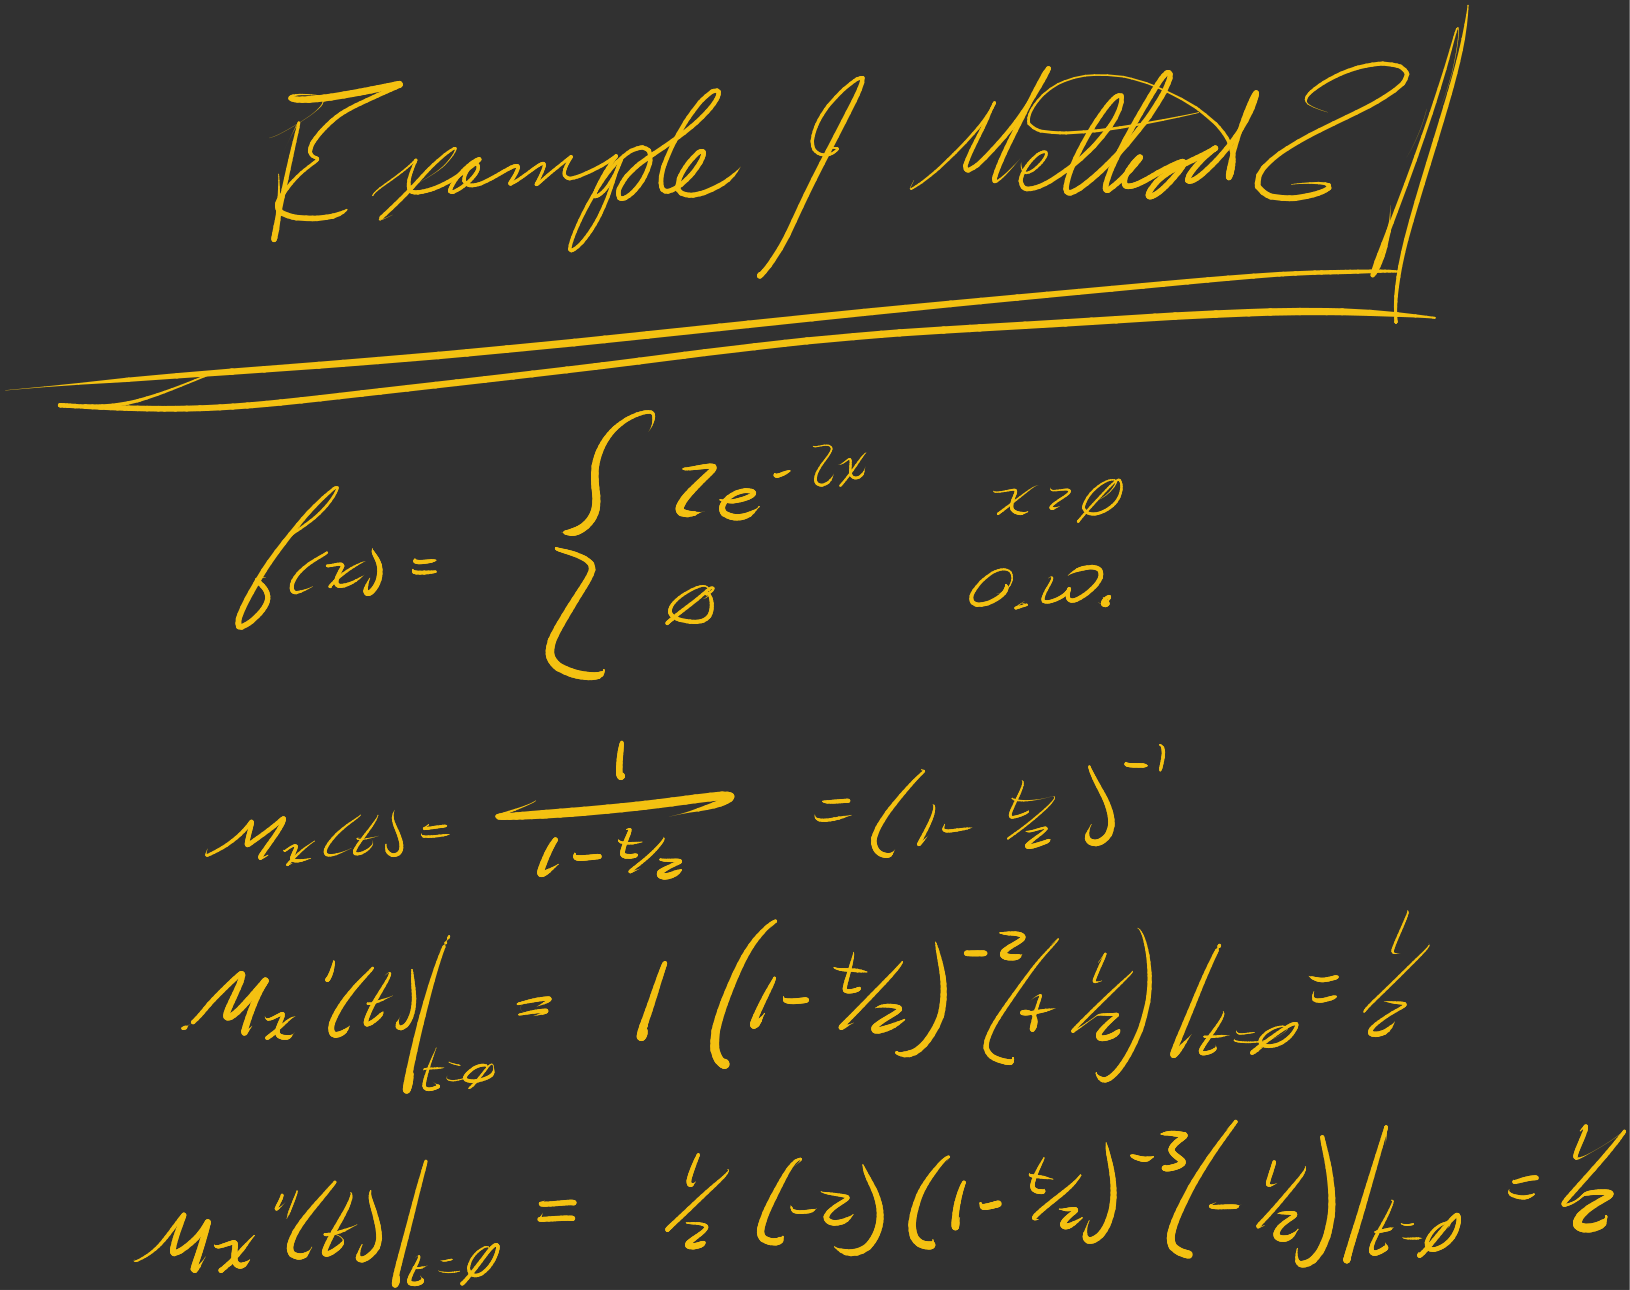 Example 9 Method 2
f(x) = { 2e^{-2x} x>0
0 o.w.
M_x(t) = 1/(1 - t/2) = (1 - t/2)^{-1}
M_x'(t)|_{t=0} = 1 (1 - t/2)^{-2} (+ 1/2)|_{t=0} = 1/2
M_x''(t)|_{t=0} = 1/2 (-2) (1 - t/2)^{-3} (- 1/2)|_{t=0} = 1/2